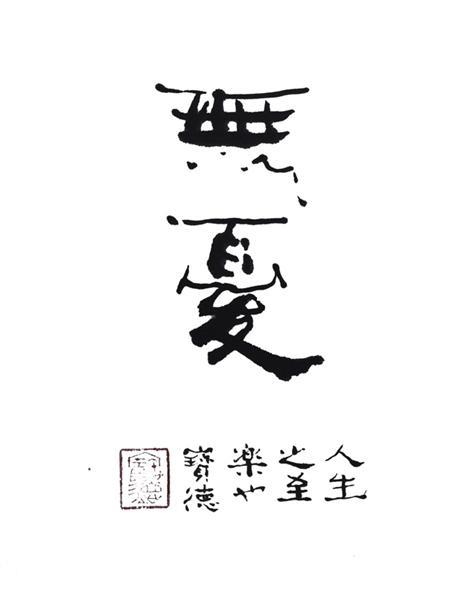 無憂
人生
之至
楽也
寶德